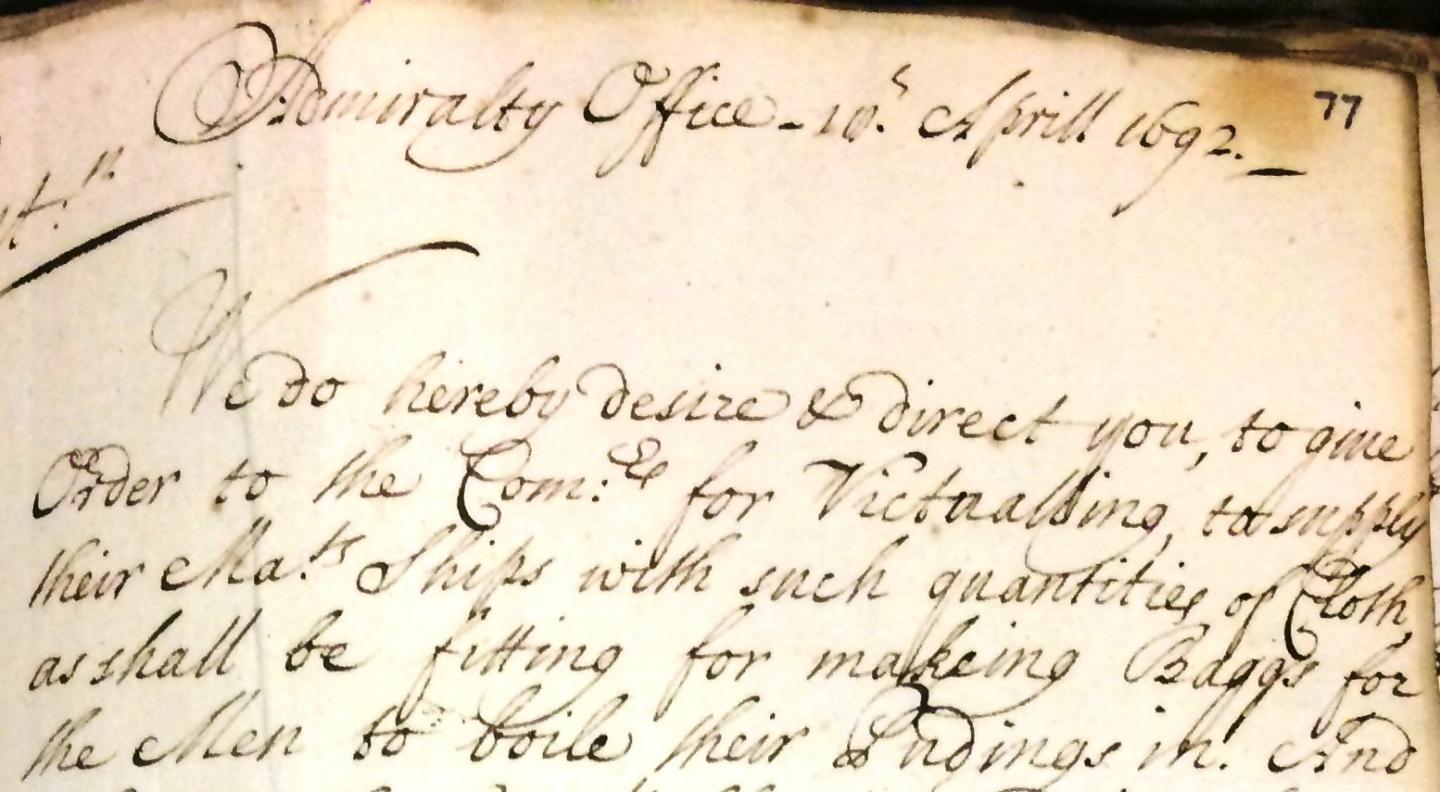 Admiralty Office - 10.th Aprill 1692. 77
We do hereby desire & direct you, to give
Order to the Com:rs for Victualling, to supply
their Ma:ts Ships with such quantities of Cloth,
as shall be fitting for makeing Baggs for
the Men to boile their Pudings in. And